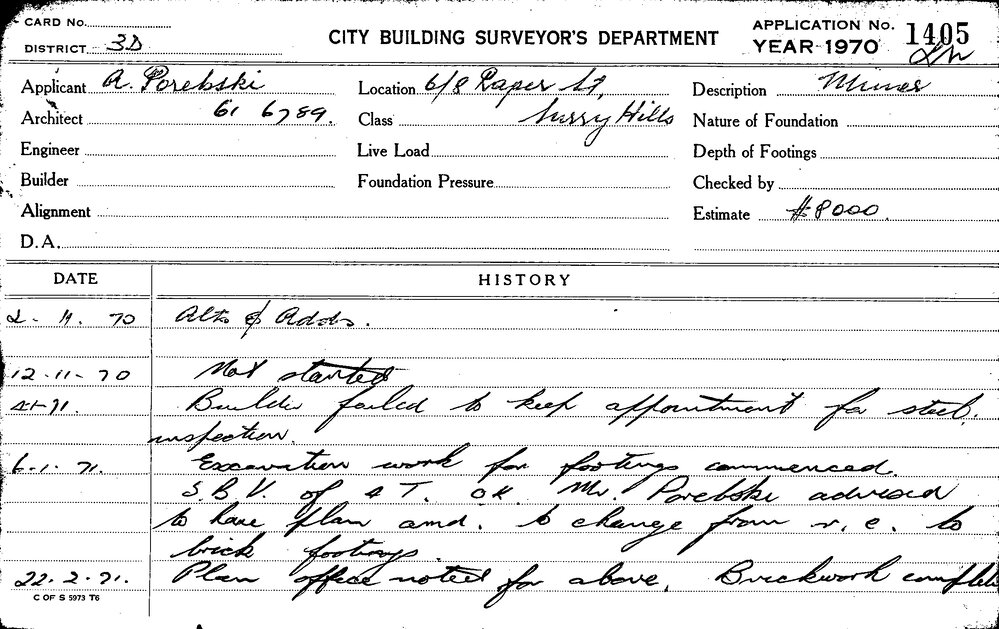 CARD No.
DISTRICT 3D
CITY BUILDING SURVEYOR'S DEPARTMENT
APPLICATION No. 1405
YEAR 1970
Applicant A. Porebski
Location 6/8 Raper St,
Description Minor
Architect 61 6789.
Class Surry Hills
Nature of Foundation
Engineer
Live Load
Depth of Footings
Builder
Foundation Pressure
Checked by
Alignment
Estimate $8000.
D.A.
DATE HISTORY
2-11.70 Alts & Adds.
12-11-70 Not started
4-1-71. Builder failed to keep appointment for steel.
inspection.
6-1.71. Excavation work for footings commenced.
S.B.V. of 4 T. OK. Mr. Porebski advised
to have plan amd. to change from r.c. to
brick footings.
22.2.71. Plan office noted for above. Brickwork complete
C OF S 5973 T6